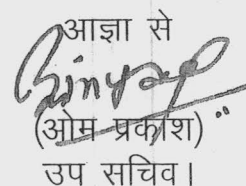 आज्ञा से
(ओम प्रकाश)
उप सचिव।